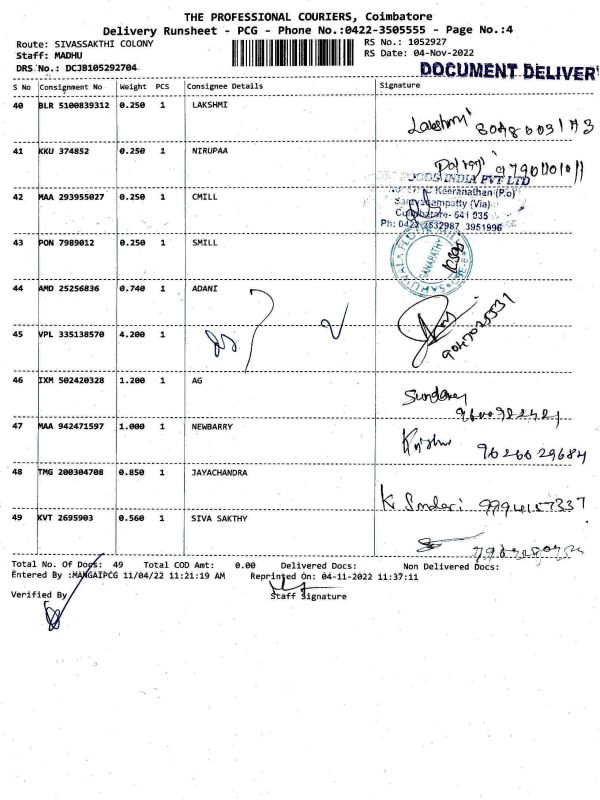 THE PROFESSIONAL COURIERS, Coimbatore
Delivery Runsheet - PCG - Phone No.:0422-3505555 - Page No.:4
Route: SIVASSAKTHI COLONY RS No.: 1052927
Staff: MADHU RS Date: 04-Nov-2022
DRS No.: DCJB105292704 DOCUMENT DELIVER
S No Consignment No Weight PCS Consignee Details Signature
40 BLR 5100839312 0.250 1 LAKSHMI
Lakshmi
41 KKU 374852 0.250 1 NIRUPAA
9790101011
FOODS INDIA PVT LTD
42 MAA 293955027 0.250 1 CMILL
Keeranatham (P.o)
(Via)
Coimbatore- 641 035
Ph: 0422 2532987 3951996
43 PON 7989012 0.250 1 SMILL
GANAPATHY
44 AMD 25256836 0.740 1 ADANI
45 VPL 335138570 4.200 1
9047025531
46 IXM 502420328 1.200 1 AG
47 MAA 942471597 1.000 1 NEWBARRY
9626029684
48 TMG 200304708 0.850 1 JAYACHANDRA
K Sundari 9994157337
49 KVT 2695903 0.560 1 SIVA SAKTHY
Total No. Of Docs: 49 Total COD Amt: 0.00 Delivered Docs: Non Delivered Docs:
Entered By :MANGAIPCG 11/04/22 11:21:19 AM Reprinted On: 04-11-2022 11:37:11
Verified By Staff Signature